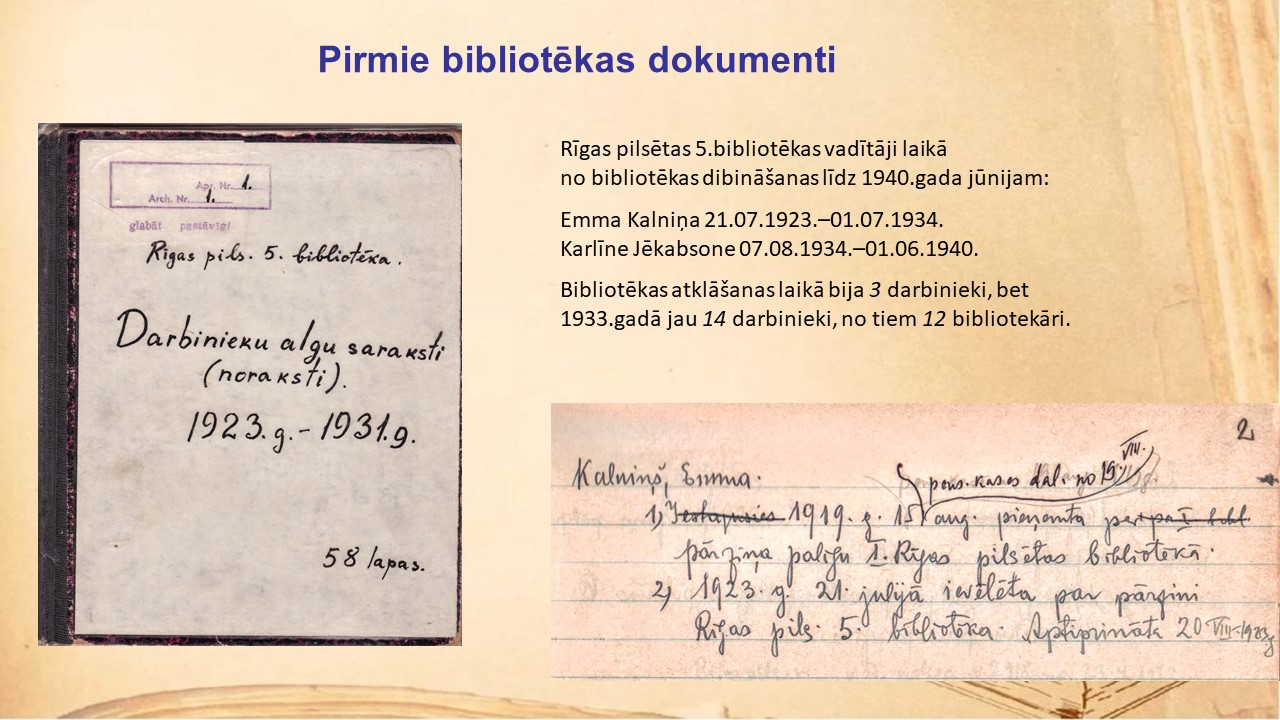 Pirmie bibliotēkas dokumenti
Apr. Nr. 1.
Arch. Nr. 1.
glabāt pastāvīgi
Rīgas pils. 5. bibliotēka.
Darbinieku algu saraksti
(noraksti).
1923.g.-1931.g.
58 lapas.
Rīgas pilsētas 5.bibliotēkas vadītāji laikā
no bibliotēkas dibināšanas līdz 1940.gada jūnijam:
Emma Kalniņa 21.07.1923.–01.07.1934.
Karlīne Jēkabsone 07.08.1934.–01.06.1940.
Bibliotēkas atklāšanas laikā bija 3 darbinieki, bet
1933.gadā jau 14 darbinieki, no tiem 12 bibliotekāri.
2
Kalniņš, Emma.
pens. kases dal. no 19. VIII.
1) Iestājusies 1919. g. 15 aug. pieņemta par
pārziņa palīgu I. Rīgas pilsētas bibliotēkā.
2) 1923. g. 21. julijā ievēlēta par pārzini
Rīgas pils. 5. bibliotēka. Aptiprināta 20 VIII-1923g